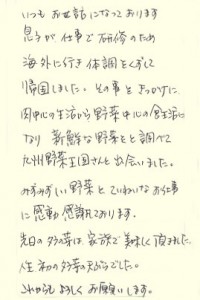 いつもお世話になっております
息子が仕事で研修のため
海外に行き体調をくずして
帰国しました。その事をきっかけに
肉中心の生活から野菜中心の食生活に
なり 新鮮な野菜をと調べて
九州野菜王国さんと出会いました。
みずみずしい野菜とていねいなお仕事
に感動 感謝しております。
先日の 家族で美味しく頂きました。
人生初の でした。
これからもよろしくお願いします。